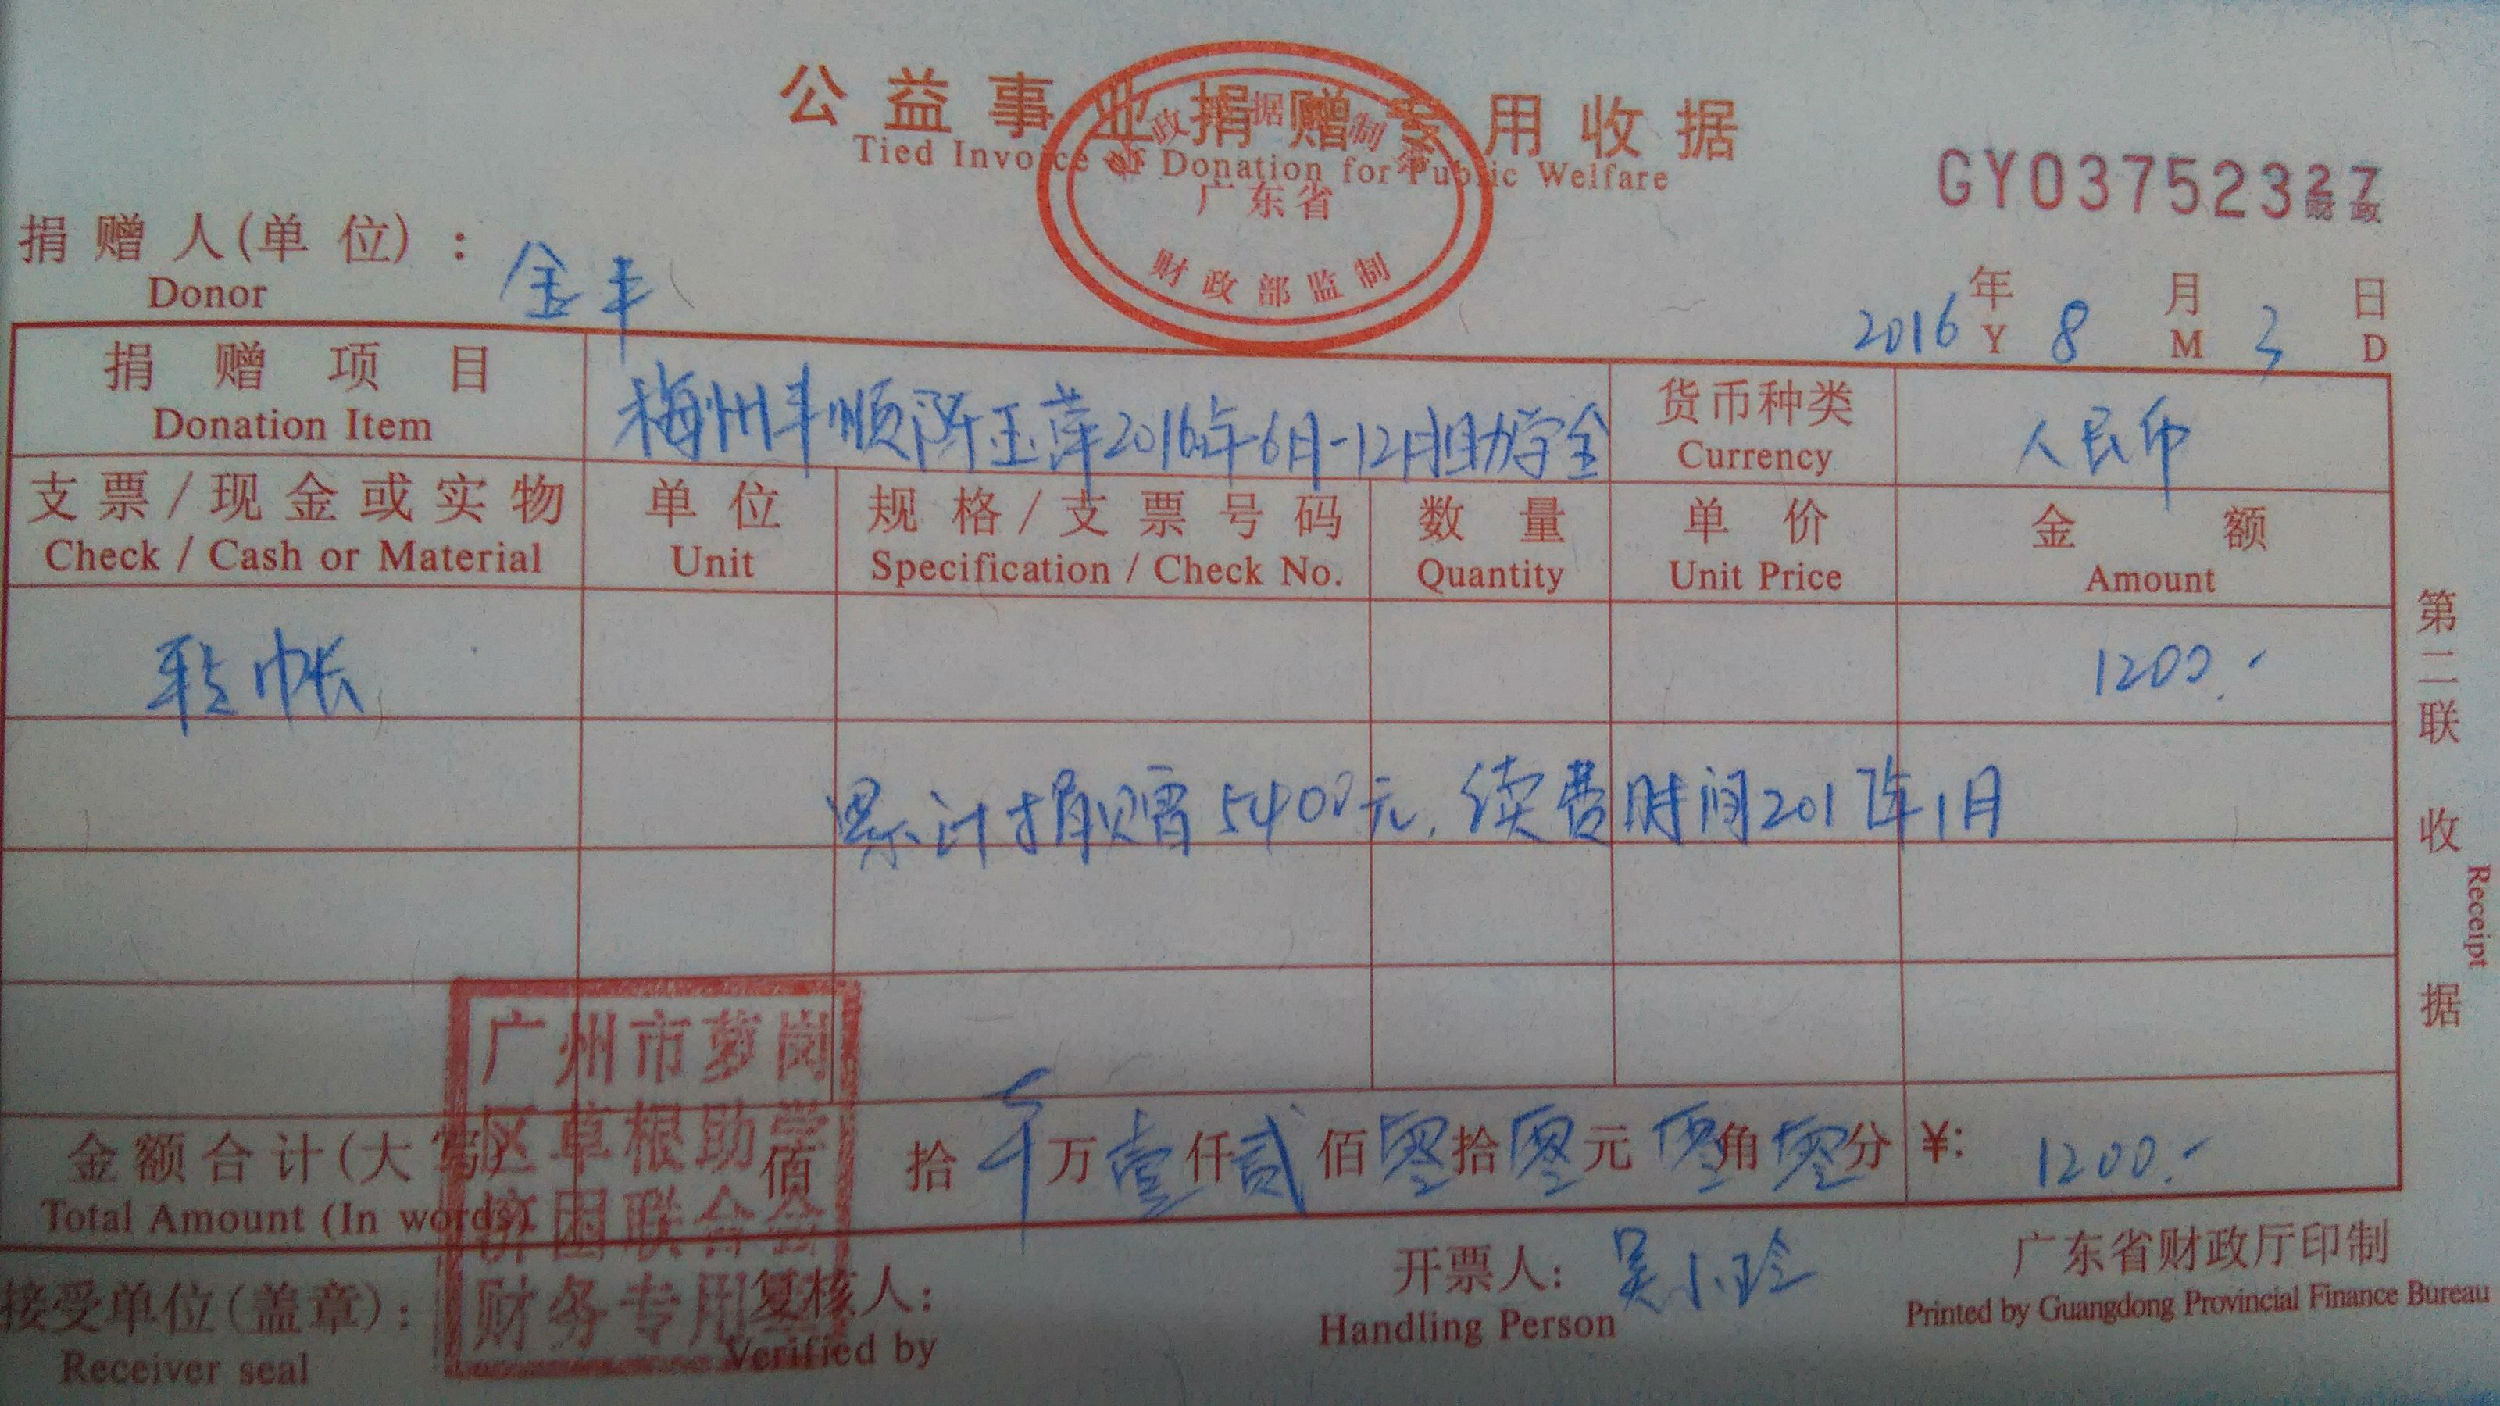 公益事业捐赠专用收据
Tied Invoice of Donation for Public Welfare
财政票据监制章
广东省
财政部监制
GY03752327
财政
捐赠人(单位):
Donor
金丰
2016 年 8 月 3 日
Y M D
捐赠项目
Donation Item
梅州丰顺陈玉萍2016年6月-12月助学金
货币种类
Currency
人民币
支票/现金或实物
Check / Cash or Material
单位
Unit
规格/支票号码
Specification / Check No.
数量
Quantity
单价
Unit Price
金额
Amount
转帐
1200.-
累计捐赠5400元, 续费时间2017年1月
金额合计(大写)
Total Amount (In words)
佰 拾 万壹仟贰佰零拾零元零角零分
¥: 1200.-
广州市萝岗
区草根助学
济困联合会
财务专用章
接受单位(盖章):
Receiver seal
复核人:
Verified by
开票人: 吴小玲
Handling Person
广东省财政厅印制
Printed by Guangdong Provincial Finance Bureau
第二联 收据
Receipt